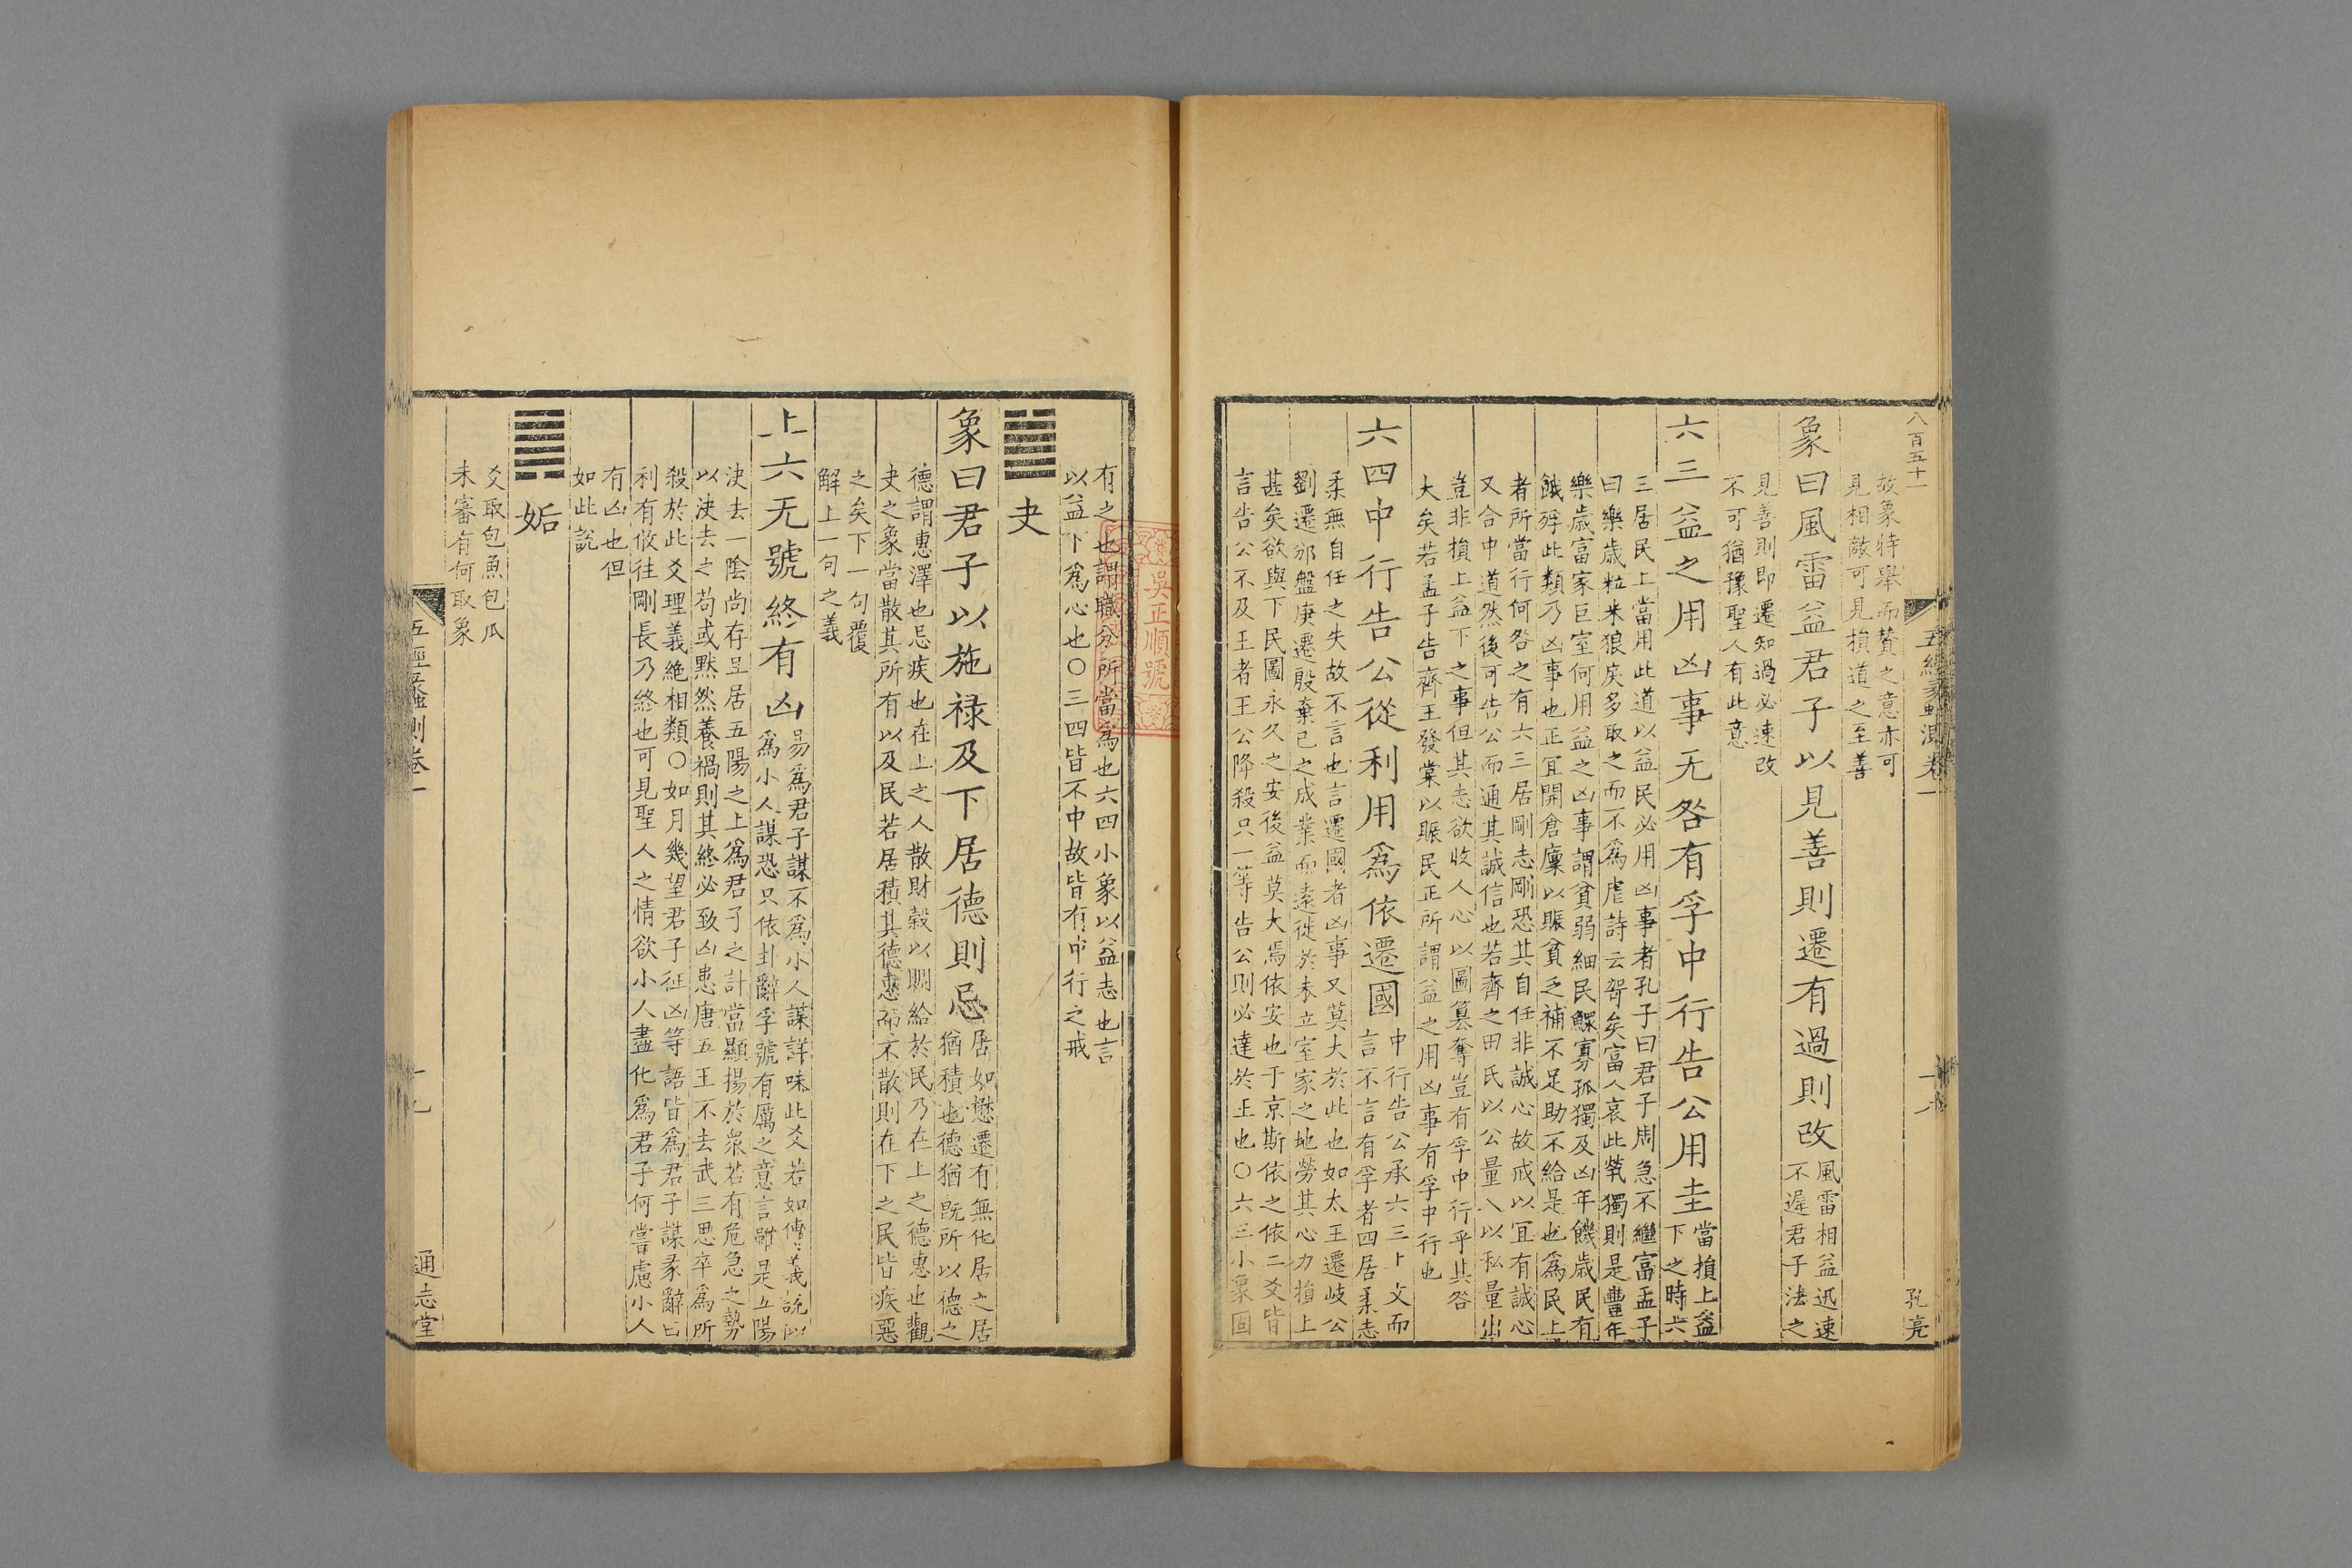 八百五十一
五經蠡測卷一
孔亮
故象特舉而贊之意亦可
見相敵可見損道之至善
象曰風雷益君子以見善則遷有過則改
風雷相益迅速
不遲君子法之
見善則即遷知過必速改
不可猶豫聖人有此意
六三益之用凶事无咎有孚中行告公用圭
當損上益
下之時六
三居民上當用此道以益民必用凶事者孔子曰君子周急不繼富孟子
曰樂歳粒米狼戾多取之而不爲虐詩云哿矣富人哀此煢獨則是豊年
樂歳富家巨室何用益之凶事謂貧弱細民鰥寡孤獨及凶年饑歳民有
餓殍此類乃凶事也正宜開倉廩以賑貧乏補不足助不給是也爲民上
者所當行何咎之有六三居剛志剛恐其自任非誠心故戒以宜有誠心
又合中道然後可告公而通其誠信也若齊之田氏以公量入以私量出
豈非損上益下之事但其志欲收人心以圖簒奪豈有孚中行乎其咎
大矣若孟子告齊王發棠以賑民正所謂益之用凶事有孚中行也
六四中行告公從利用爲依遷國
中行告公承六三上文而
言不言有孚者四居柔志
柔無自任之失故不言也言遷國者凶事又莫大於此也如太王遷岐公
劉遷邠盤庚遷殷棄已之成業而遠徙於未立室家之地勞其心力損上
甚矣欲與下民圖永久之安後益莫大焉依安也于京斯依之依二爻皆
言告公不及王者王公降殺只一等告公則必達於王也○六三小象固
有之也謂職分所當爲也六四小象以益志也言
以益下爲心也○三四皆不中故皆有中行之戒
吴正順號
夬
象曰君子以施禄及下居德則忌
居如懋遷有無化居之居
猶積也德猶旣所以德之
德謂惠澤也忌疾也在上之人散財穀以賙給於民乃在上之德惠也觀
夬之象當散其所有以及民若居積其德惠而不散則在下之民皆疾惡
之矣下一句覆
解上一句之義
上六无號終有凶
昜爲君子謀不爲小人謀詳味此爻若如傳義説似
爲小人謀恐只依卦辭孚號有厲之意言雖是五陽
決去一陰尚存呈居五陽之上爲君子之計當顯揚於衆若有危急之勢
以決去之苟或黙然養禍則其終必致凶患唐五王不去武三思卒爲所
殺於此爻理義絶相類○如月幾望君子征凶等語皆爲君子謀彖辭曰
利有攸往剛長乃終也可見聖人之情欲小人盡化爲君子何嘗慮小人
有凶也但
如此説
姤
爻取包魚包瓜
未審有何取象
五經蠡測卷一
十九
通志堂